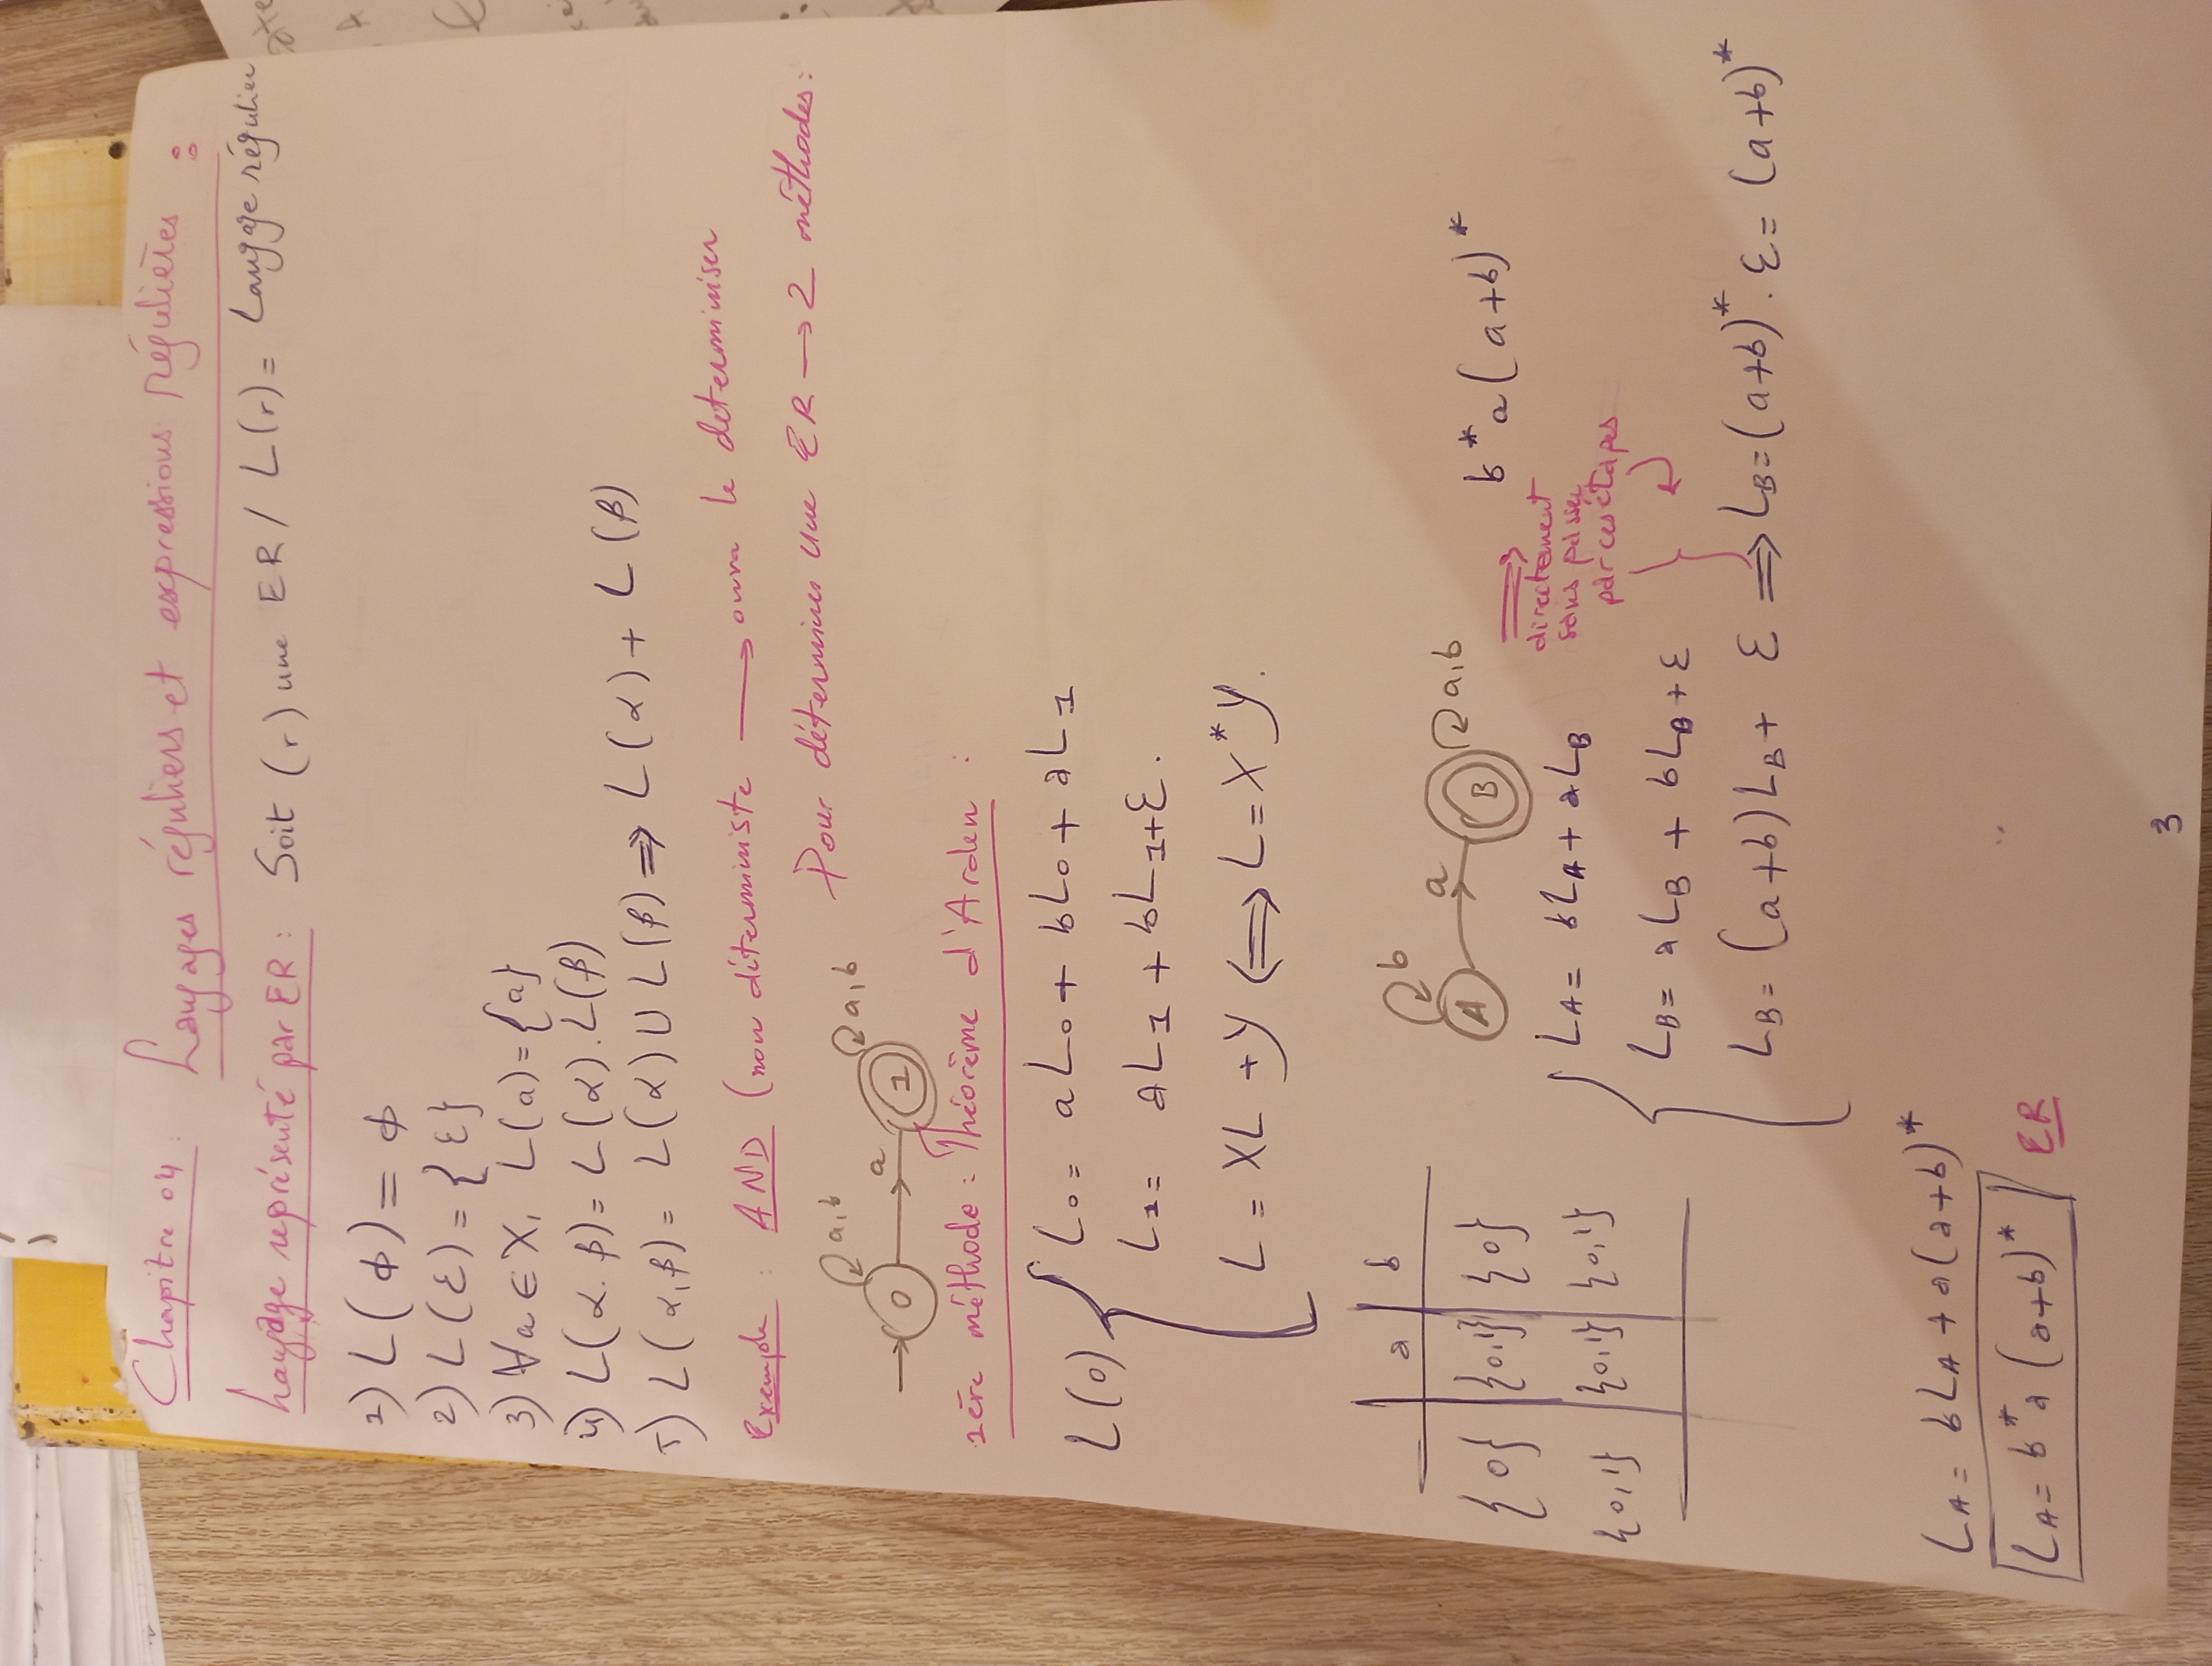 Chapitre 04 : Langages réguliers et expressions régulières :
Langage représenté par ER : Soit (r) une ER / L(r) = Langage régulier
1) L(ϕ) = ϕ
2) L(ε) = {ε}
3) ∀a ∈ X, L(a) = {a}
4) L(α.β) = L(α).L(β)
5) L(α,β) = L(α) ∪ L(β) ⇒ L(α) + L(β)
Exemple : AND (non déterministe → le determiniser
Pour déterminer une ER → 2 méthodes :
a,b a a,b
0 1
1ère méthode : Théorème d'Arden :
L(0)
L0 = aL0 + bL0 + aL1
L1 = aL1 + bL1 + ε.
L = XL + Y ⇔ L = X*Y.
a b
{0} {0,1} {0}
{0,1} {0,1} {0,1}
b a a,b
A B
b*a(a+b)*
directement
sans passer
par ces étapes
LA = bLA + aLB
LB = aLB + bLB + ε
LB = (a+b)LB + ε ⇒ LB = (a+b)*.ε = (a+b)*
LA = bLA + a(a+b)*
LA = b*a(a+b)* ER
3